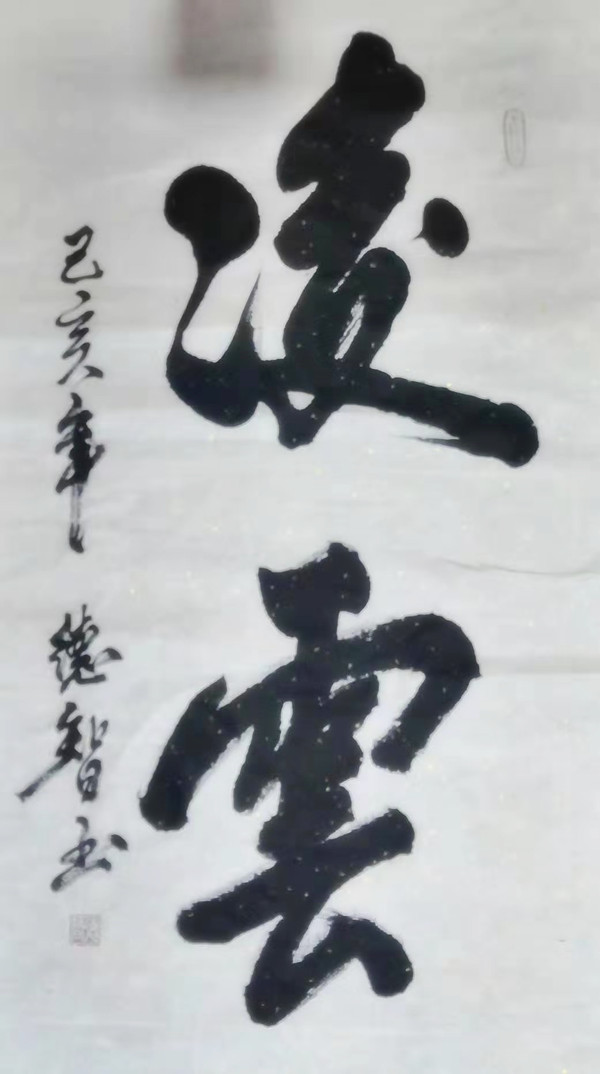 凌雲
己亥年 德智书